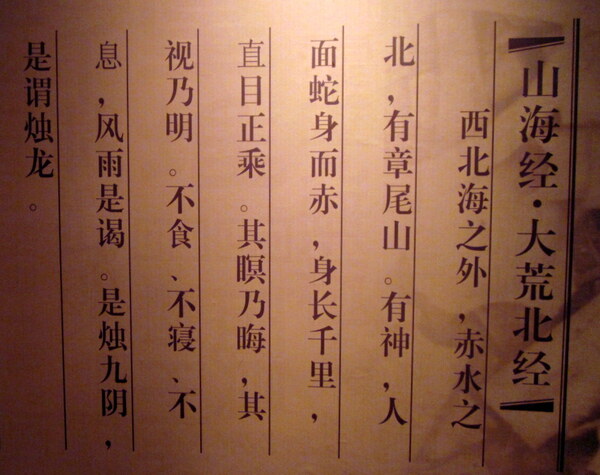 【山海经·大荒北经】
西北海之外，赤水之
北，有章尾山。有神，人
面蛇身而赤，身长千里，
直目正乘。其瞑乃晦，其
视乃明。不食、不寝、不
息，风雨是谒。是烛九阴，
是谓烛龙。